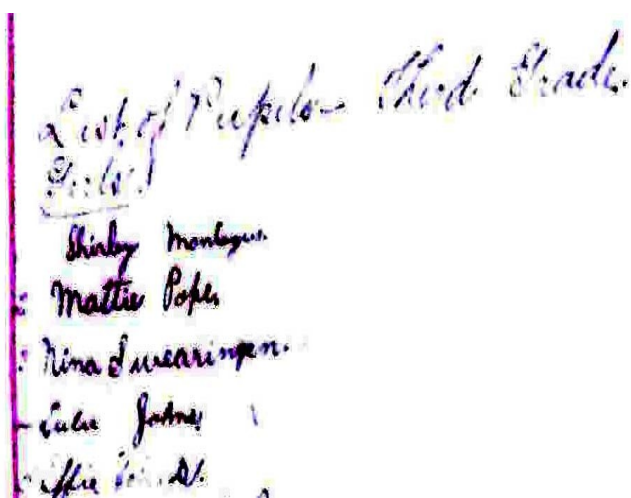 List of Pupils - Third Grade.
Girls.
Shirley Montague.
Mattie Pope,
Nina Swearingen.
Lulu
Effie